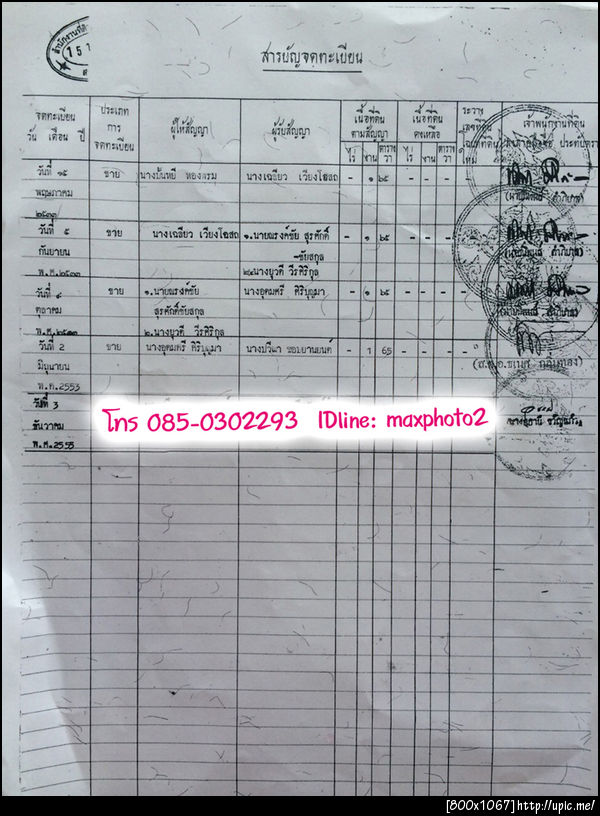 สารบัญจดทะเบียน
จดทะเบียน
วัน เดือน ปี
ประเภท
การ
จดทะเบียน
ผู้ให้สัญญา
ผู้รับสัญญา
เนื้อที่ดิน
ตามสัญญา
ไร่ งาน ตาราง
วา
เนื้อที่ดิน
คงเหลือ
ไร่ งาน ตาราง
วา
ระวาง
ใหม่
เจ้าพนักงานที่ดิน
วันที่ ๑๕ ขาย - ๑ ๒๕ - - - -
พฤษภาคม
๒๕๓๓
วันที่ ๕ ขาย นางเฉลียว เวียงโอสถ ๑.นายณรงค์ชัย สุรศักดิ์ - ๑ ๒๕ - - - -
กันยายน -ชัยสกุล
พ.ศ.๒๕๓๓ ๒.นางยุวดี วีรศิริกุล
วันที่ ๙ ขาย ๑.นายณรงค์ชัย นางอุดมศรี - ๑ ๒๕ - - - -
ตุลาคม สุรศักดิ์ชัยสกุล
พ.ศ.๒๕๓๓ ๒.นางยุวดี วีรศิริกุล
วันที่ 2 ขาย นางอุดมศรี นางปวีณา - 1 65 - - - -
มิถุนายน
พ.ศ.2553
วันที่ 3
ธันวาคม
พ.ศ.2555
โทร 085-0302293 IDline: maxphoto2
[800x1067]http://upic.me/